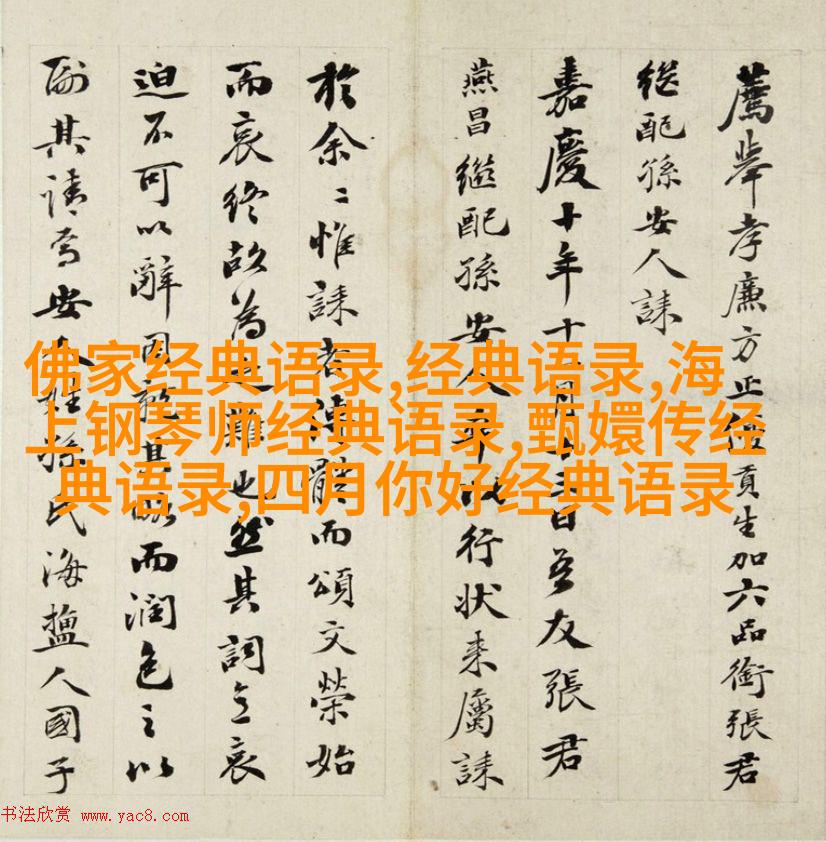 薦舉孝廉方正優貢生加六品銜張君
継配孫安人誄
嘉慶十年十月日吾友張君
燕昌継配孫安人卒以行状来屬誄
於余〻惟誄者體而頌文榮始
而哀終故為之難也然其詞立哀
迫不可以辭因其而潤色之以
副其請焉安人姓孫氏海鹽人國子
佛家经典语录,经典语录,海
上钢琴师经典语录,甄嬛传经
典语录,四月你好经典语录
书法欣赏 www.yac8.com